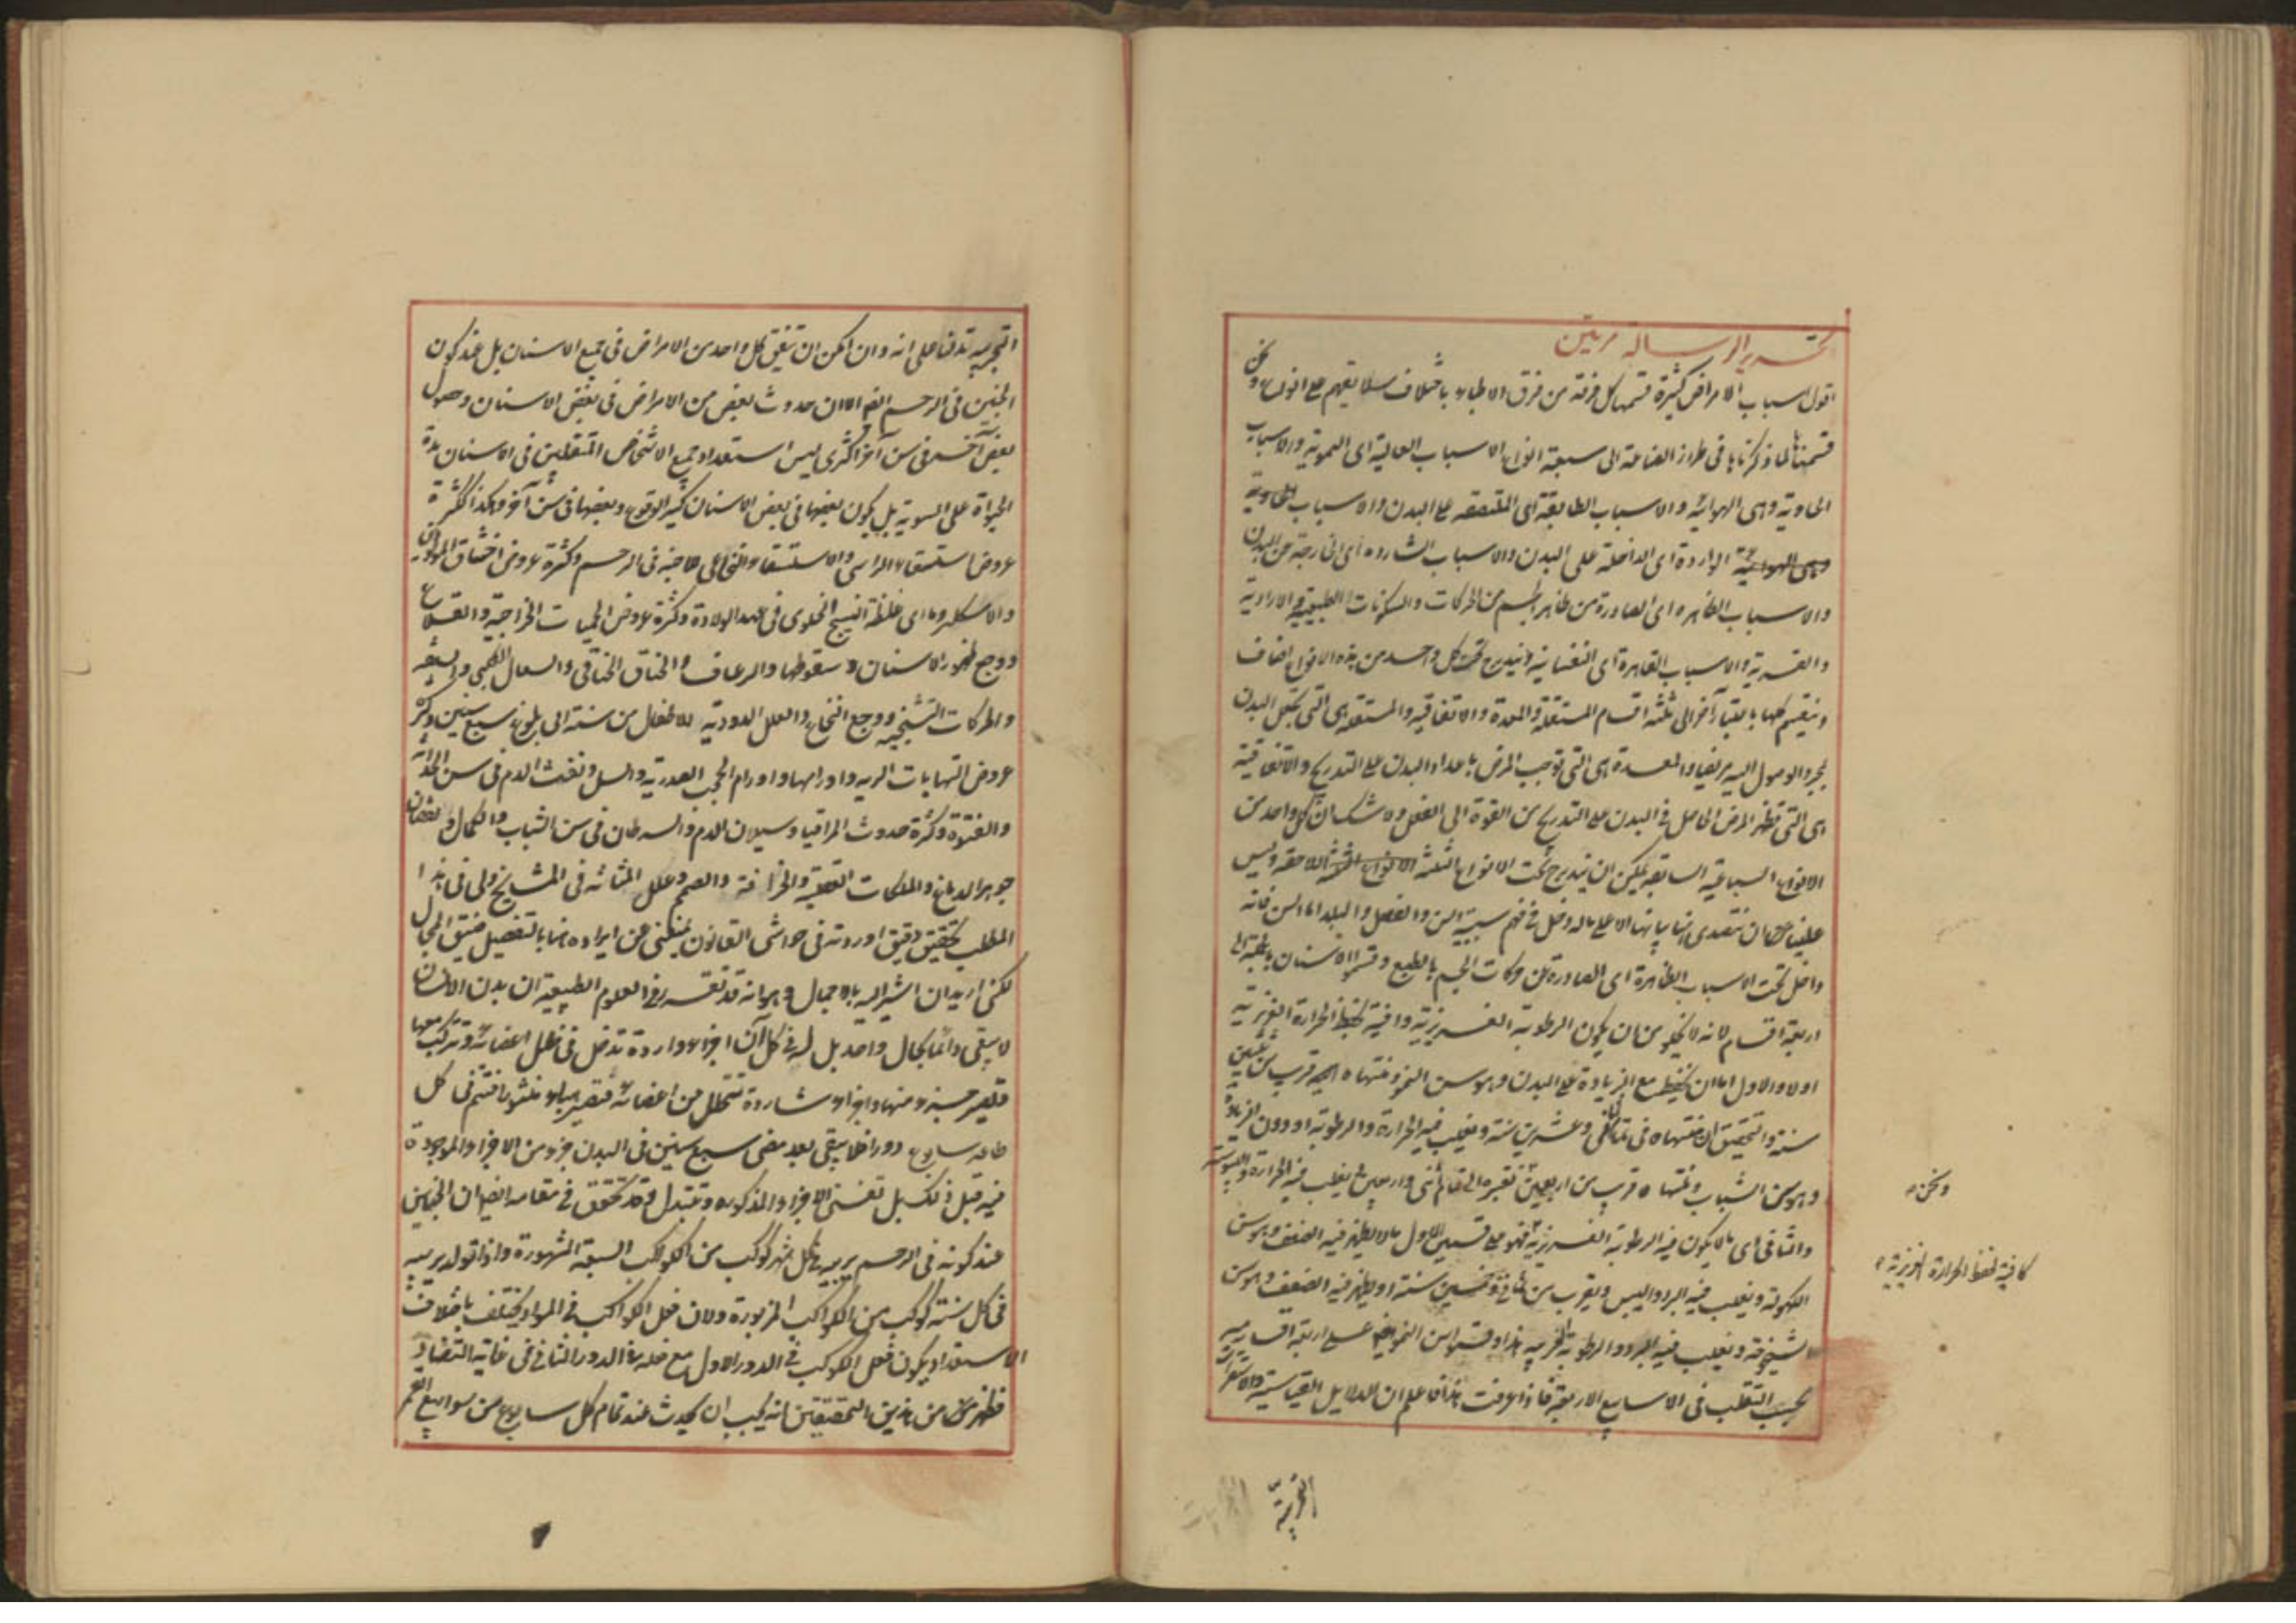 تحرير الرسالة مرتين
اقول اسباب الامراض كثيرة قسمها كل فرقة من فرق الاطباء باختلاف سلايقهم على انواع ونحن
قسمناها لما ذكرناها فى طراز الصناعة الى سبعة انواع الاسباب العالية اى السموية والاسباب
الحاوية وهى الهوائية والاسباب الطابقة اى الملتصقة على البدن والاسباب
وهى الهوائية الواردة اى الداخلة على البدن والاسباب الشاردة اى الخارجة عن البدن
والاسباب الظاهره اى الصادرة من ظاهر الجسم من الحركات والسكونات الطبيعية والارادية
والقسرية والاسباب القاهرة اى النفسانية ويندرج تحت كل واحد من هذه الانواع اصناف
وينقسم كلها باعتبار آخر الى ثلثة اقسام المستقلة والمعدة والاتفاقيه والمستقله هى التى تجعل البدن
بمجرد الوصول اليه مريضا والمعدة هى التى توجب المرض باعداد البدن على التدريج والاتفاقية
هى التى تظهر المرض الحاصل فى البدن على التدريج من القوة الى الفعل ولا شك ان كل واحد من
الانواع السباعية السابقه يمكن ان يندرج تحت الانواع الثلثة الانواع الثلثة اللاحقه وليس
علينا ان نتصدى ببيانها الا على ماله دخل فى فهم سببية السن والفصل والبلد اما السن فانه
داخل تحت الاسباب الظاهرة اى الصادرة من حركات الجسم بالطبع وقسموا الاسنان
اربعة اقسام لانه لا يخلو من ان يكون الرطوبة الغريزية وافية بحفظ الحرارة الغريزية
اولا والاول اما ان يحفظ مع الزيادة على البدن وهو سن النمو ومنتهاه الى قريب من ثلثين
سنة والتحقيق ان منتهاه فى ثمانى وعشرين سنة ويغلب فيه الحرارة والرطوبة او دون الزيادة
وهو سن الشباب ومنتهاه قريب من اربعين فيغلب فيه الحرارة واليبوسة
والثانى اى ما لا يكون فيه الرطوبة الغريزية فهو على قسمين الاول ما لا يظهر فيه الضعف وهو سن
الكهولة ويغلب فيه البرد واليبس ويقرب من وخمسين سنة او يظهر فيه الضعف وهو سن
الشيخوخة ويغلب فيه البرد والرطوبة الغريبه هذا وقسموا سن النمو ايضا على اربعة اقسام
بحسب التقلب فى الاسابيع الاربعة فاذا عرفت هذا فاعلم ان الدلايل القياسية والاستقرائية
ونحن
كافية لحفظ الحرارة الغريزية
التجربية
التجربيه تدلنا على انه وان امكن ان يتفق كل واحد من الامراض فى جميع الاسنان بل عند كون
الجنين فى الرحم ايضا الا ان حدوث بعض من الامراض فى بعض الاسنان وحصول
بعض آخر فى سن آخر اكثرى ليس استعداد جميع الاشخاص المتقلبين فى الاسنان مدة
الحيواة على السوية بل يكون بعضها فى بعض الاسنان كثير الوقوع وبعضها فى سن آخر وهكذا لكثرة
عروض استسقاء الراس والاستسقاء النخاعى لصاحبه فى الرحم وكثرة عروض اختناق المولودين
والاسكلروما اى غلظة النسيج الخلوى فى عهد الولادة وكثرة عروض الحميات الخراجية والقلاع
ووجع ظهور الاسنان وسقوطها والرعاف والخناق الخناقى والسعال الكلبى
والحركات التشنجيه ووجع النخاع والعلل الدودية للاطفال من سنة الى بلوغ سبع سنين وكثرة
عروض التهابات الريه واورامها واورام الحجب الصدرية والسل ونفث الدم فى سن الحداثة
والفتوة وكثرة حدوث المراقيا وسيلان الدم والسرطان فى سن الشباب والكمال ونقصان
جوهر الدماغ والملكات العقلية والخرافة والصمم وعلل المثانه فى المشايخ ولى فى هذا
المطلب تحقيق دقيق اوردته فى حواشى القانون يمنعنى عن ايراده هنا بالتفصيل ضيق المجال
لكنى اريد ان اشير اليه بالاجمال وهو انه قد تقرر فى العلوم الطبيعية ان بدن الانسان
لا يبقى دائما بحال واحد بل له فى كل آن اجزاء واردة تدخل فى خلل اعضائه وتتركب معها
فتصير جزء منها واجزاء شاردة تتحلل من اعضائه فتصير هباء منثورا فتتم فى كل
سابوع دورا فلا يبقى بعد مضى سبع سنين فى البدن جزء من الاجزاء الموجودة
فيه قبل ذلك بل تفنى الاجزاء المذكوره وتتبدل وقد تحقق فى مقامه ايضا ان الجنين
عند كونه فى الرحم يربيه فى كل شهر كوكب من الكواكب السبعة المشهورة واذا تولد يربيه
فى كل سنة كوكب من الكواكب المزبورة ولان فعل الكواكب فى المواد يختلف باختلاف
الاستعداد يكون فعل الكوكب فى الدور الاول مع فعله فى الدور الثانى فى غاية التضاد
فظهر من هذين التحقيقين انه يجب ان يحدث عند تمام كل سابوع من سوابيع العمر